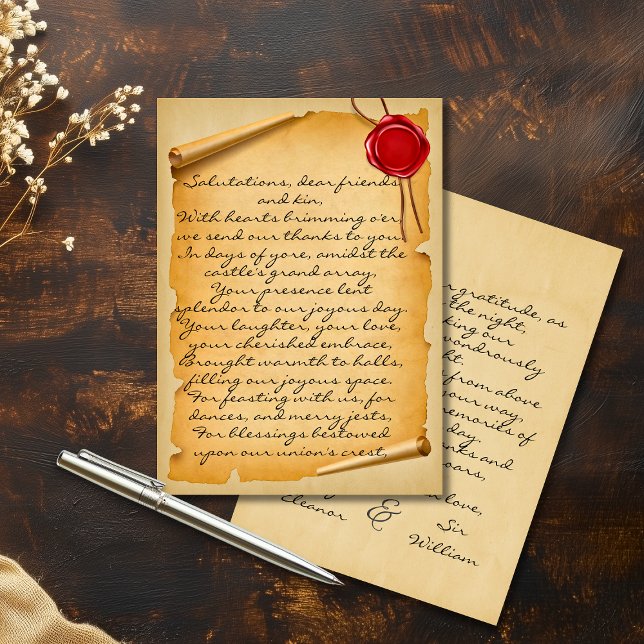 Salutations, dear friends
and kin,
With hearts brimming o'er,
we send our thanks to you.
In days of yore, amidst the
castle's grand array,
Your presence lent
splendor to our joyous day.
Your laughter, your love,
your cherished embrace,
Brought warmth to halls,
filling our joyous space.
For feasting with us, for
dances, and merry jests,
For blessings bestowed
upon our union's crest,
gratitude, as
the night,
king our
wondrously
from above
your way,
memories of
day.
nks and
oars,
love,
Eleanor & Sir
William